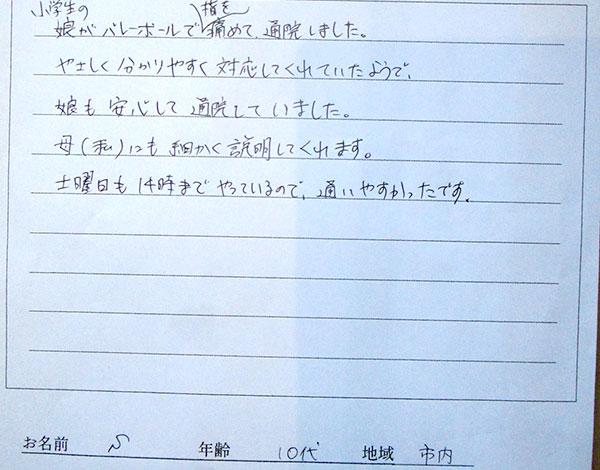 小学生の
娘がバレーボールで指を痛めて、通院しました。
やさしく分かりやすく対応してくれていたようで、
娘も安心して通院していました。
母(私)にも細かく説明してくれます。
土曜日も14時までやっているので、通いやすかったです。
お名前 S 年齢 10代 地域 市内